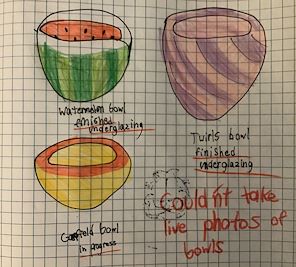 Watermelon bowl
finished
underglazing
Twirls bowl
finished
underglazing
Garfield bowl
in progress
Couldn't take
live photos of
bowls